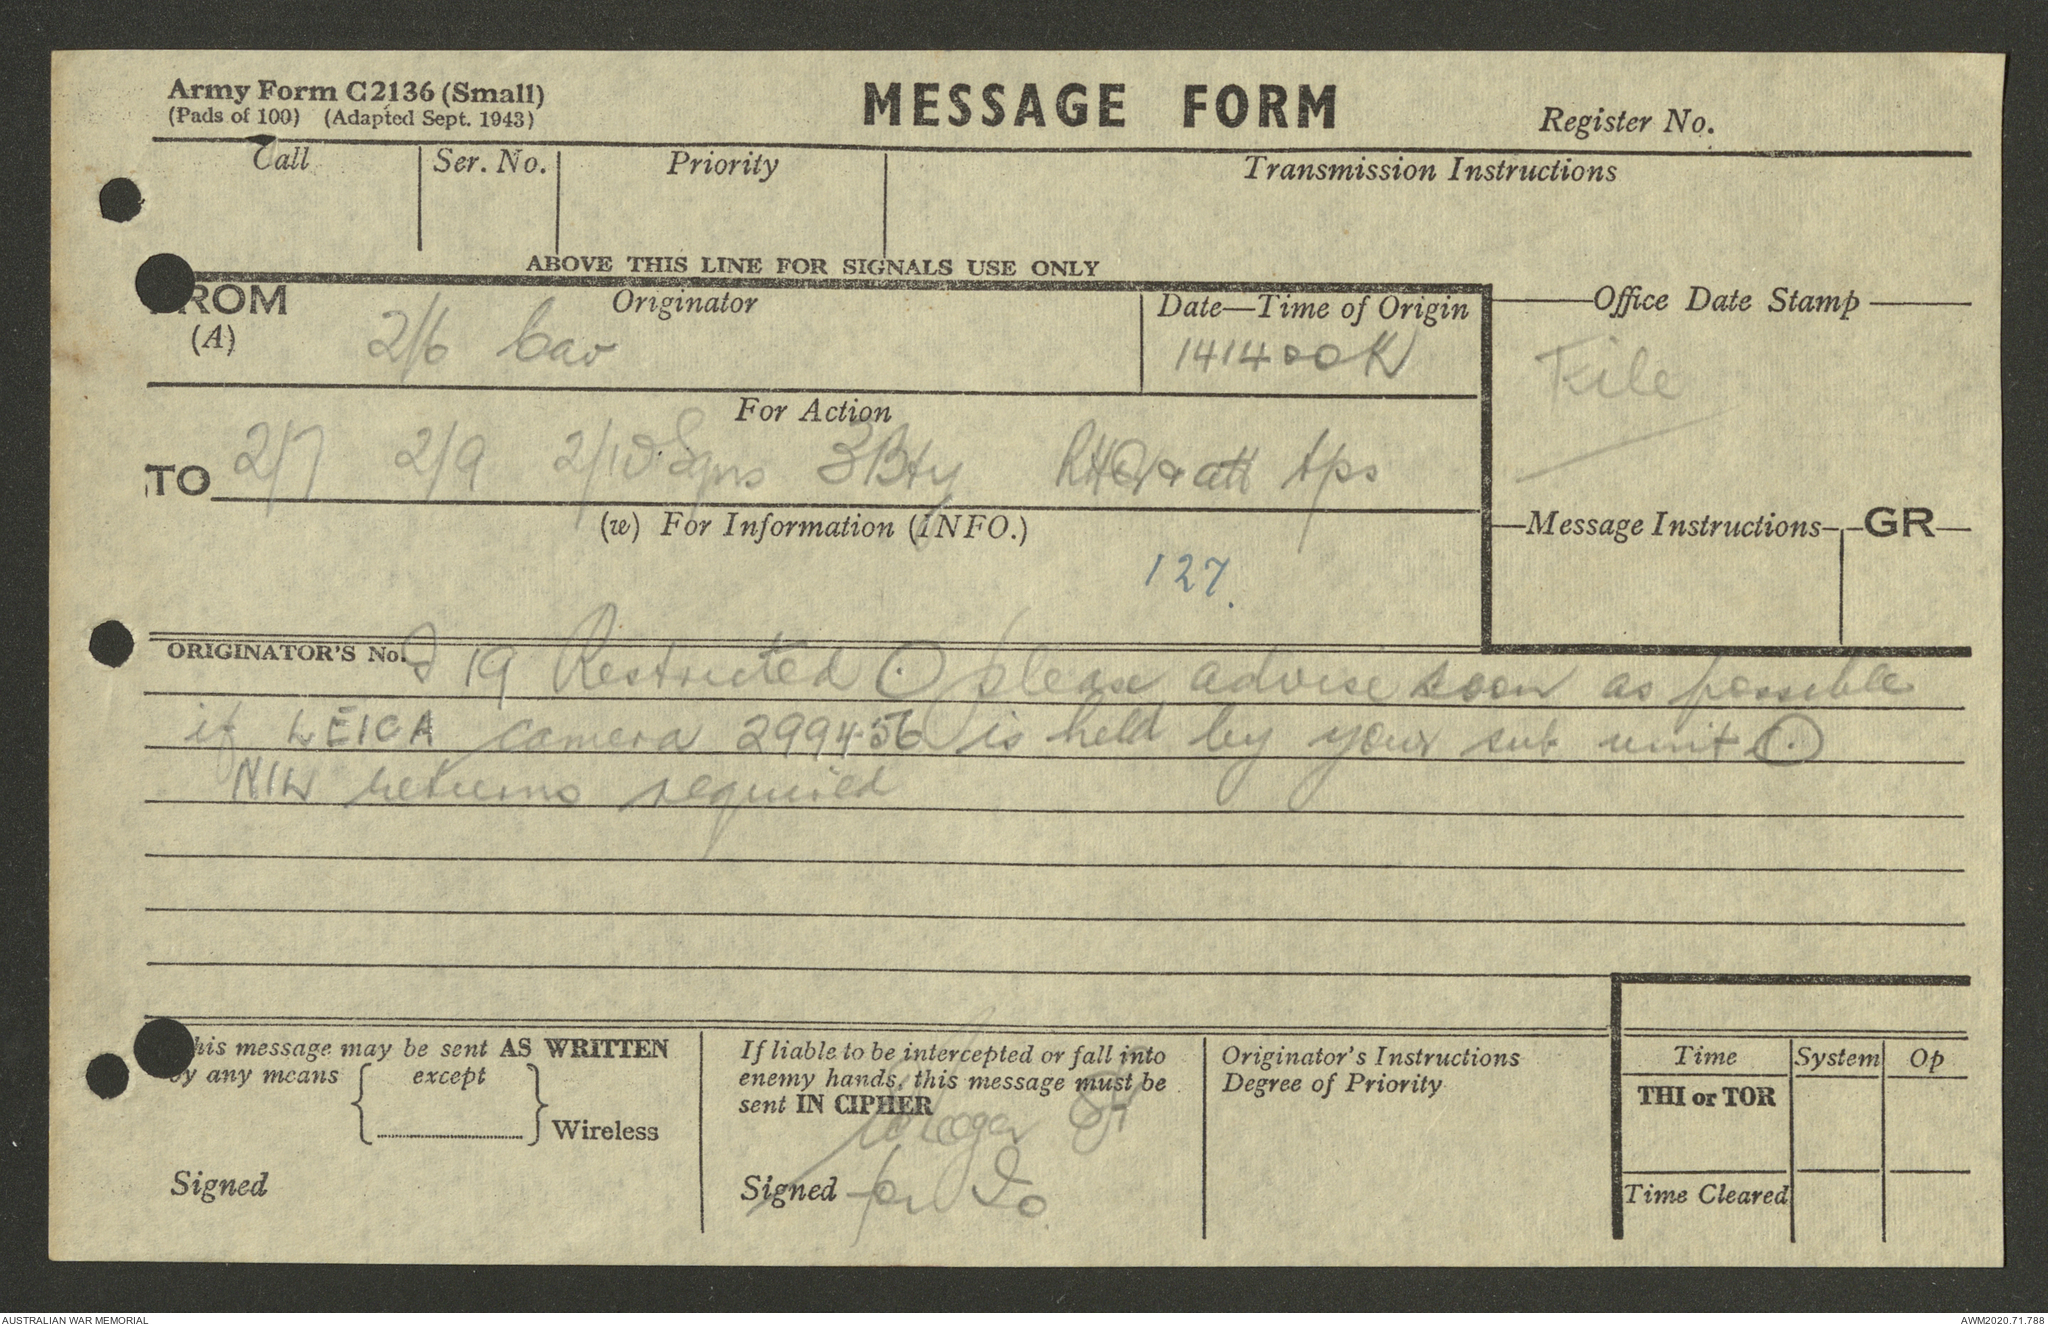 Army Form C2136 (Small)
(Pads of 100) (Adapted Sept. 1943)
MESSAGE FORM
Register No.
Call
Ser. No.
Priority
Transmission Instructions
ABOVE THIS LINE FOR SIGNALS USE ONLY
FROM
(A)
Originator
2/6 Cav
Date—Time of Origin
141400K
Office Date Stamp
File
For Action
TO 2/7 2/9 2/10 Sqns 3 Bty RHQ & att tps
(w) For Information (INFO.)
127.
Message Instructions
GR
ORIGINATOR'S No. I 19 Restricted ⊙ please advise soon as possible
if LEICA camera 299456 is held by your sub unit ⊙
NIL returns required
This message may be sent AS WRITTEN
by any means except
Wireless
Signed
If liable to be intercepted or fall into
enemy hands, this message must be
sent IN CIPHER
Signed for Io
Originator's Instructions
Degree of Priority
Time
System
Op
THI or TOR
Time Cleared
AUSTRALIAN WAR MEMORIAL
AWM2020.71.788